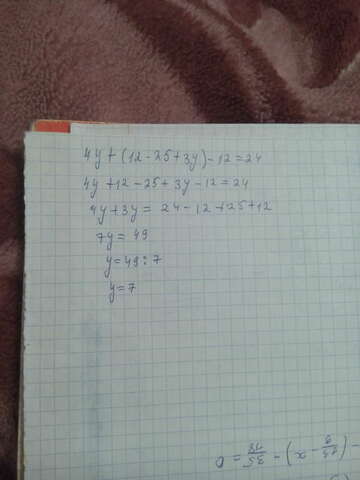 4y+(12-25+3y)-12=24
4y+12-25+3y-12=24
4y+3y= 24-12+25+12
7y= 49
y=49:7
y=7